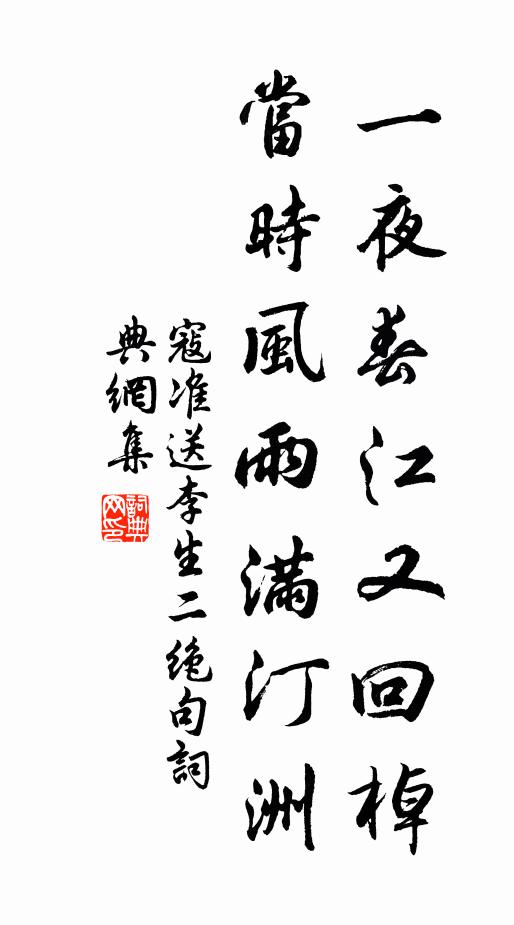 一夜春江又回棹
當時風雨滿汀洲
寇准送李生二绝句詞
典網集
詞典网印